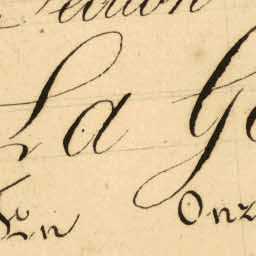 Section
La Ge
En Onz